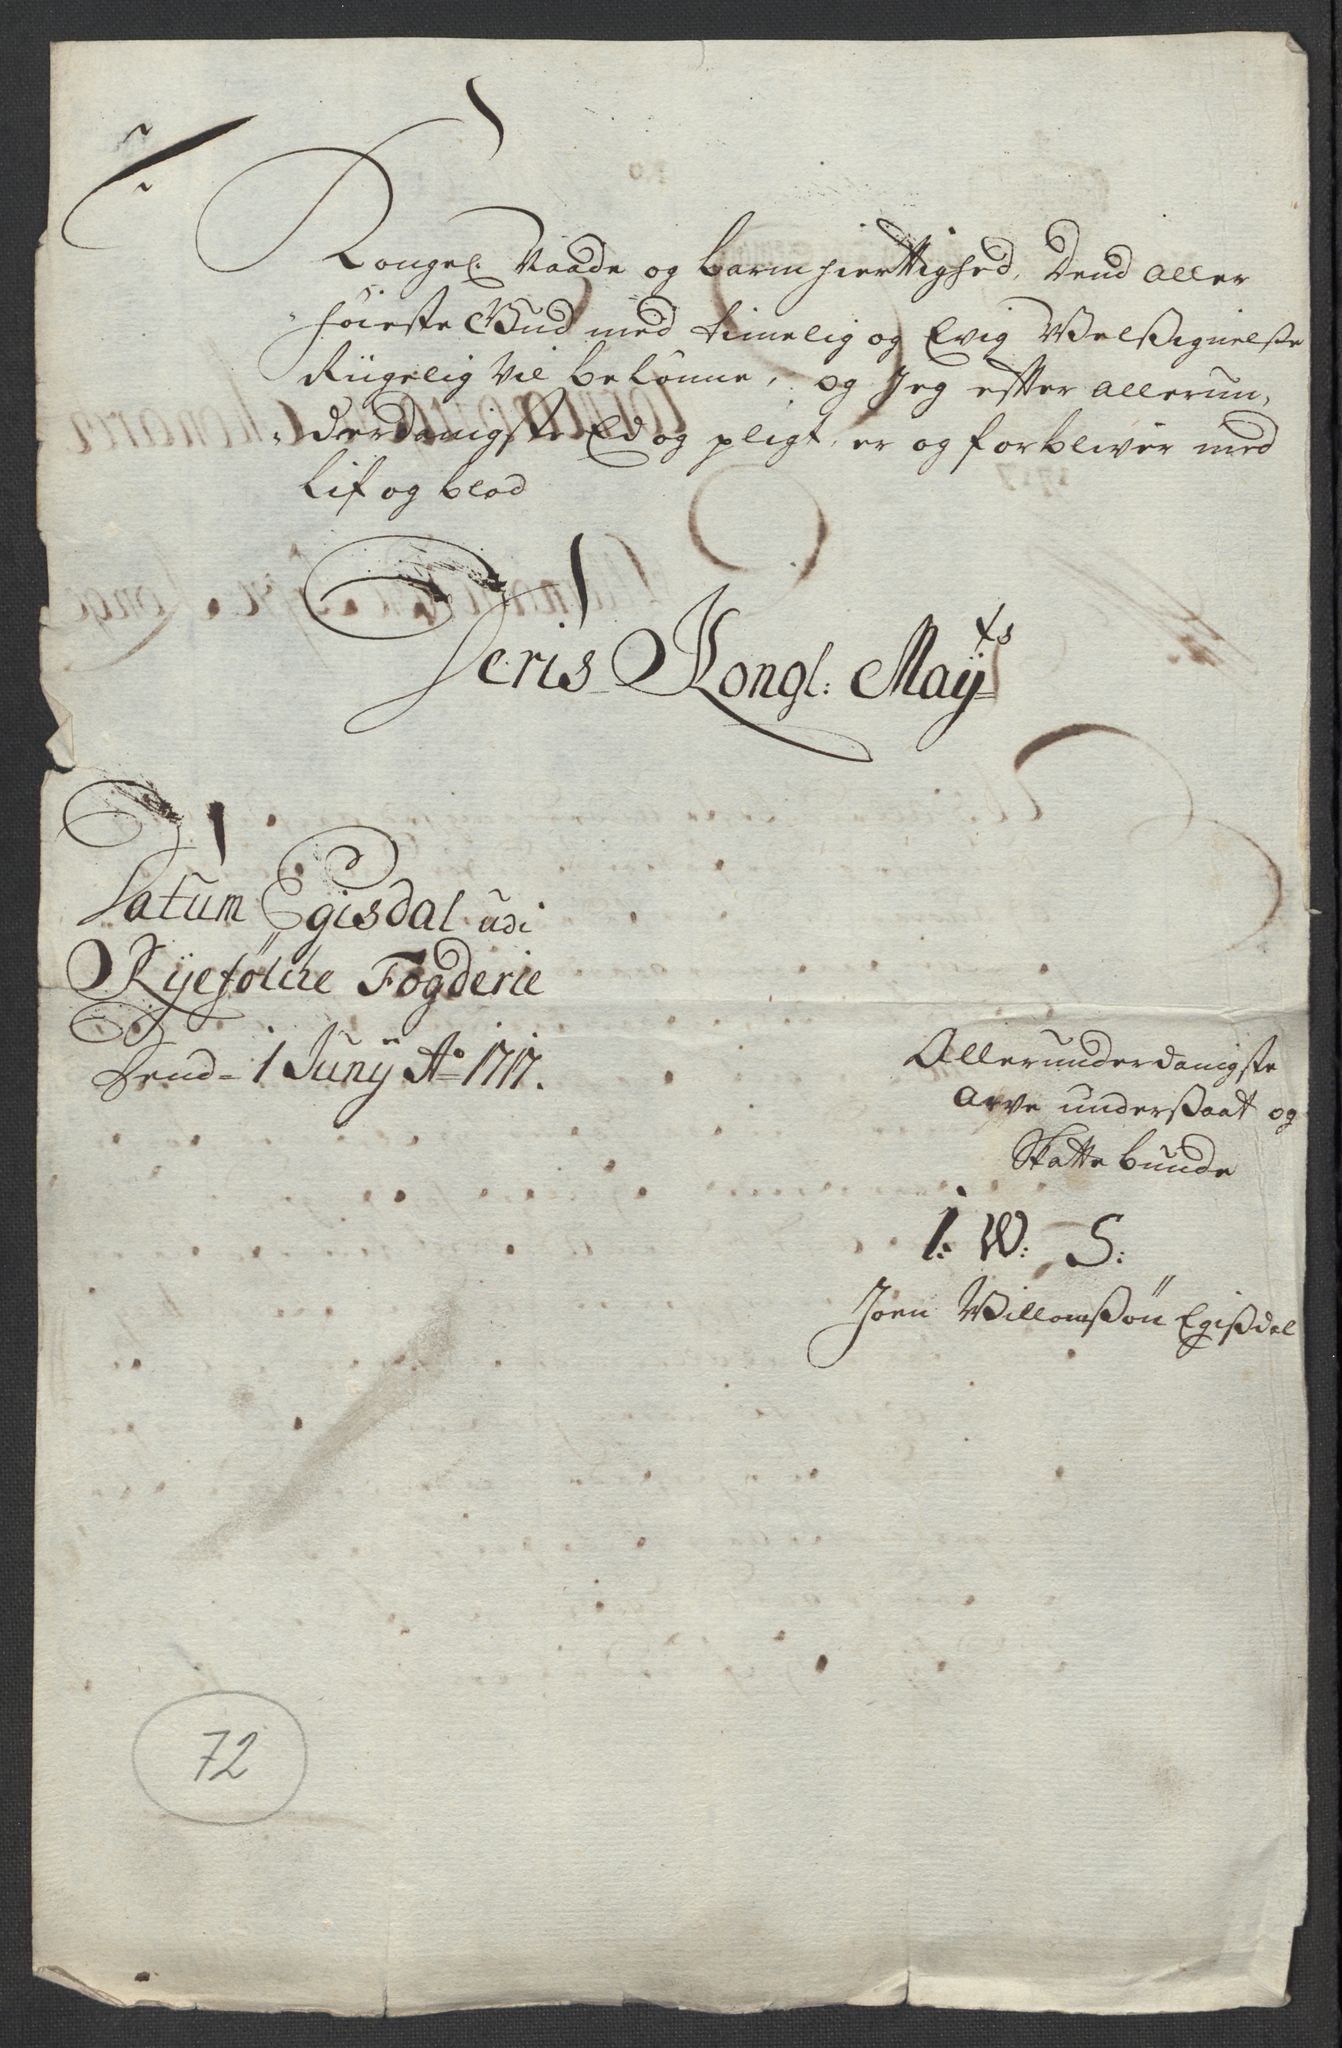 Kongel: Naade og barmhiertighed, dend aller
höieste Gud med timelig og Evig Velsignelse
Riigelig Vil belönne, og Jeg efter allerun,
derdanigste Ed og pligt, er og forbliver med
Lif og blod
Deris Kongl: May:ts
Datum Egisdal udi
Ryefölche Fogderie
Dend 1 Junij Ao 1717.
Allerunderdanigste
arve undersaat og
Skatte bunde
I: W: S:
Joen Villomsön Egisdal
72